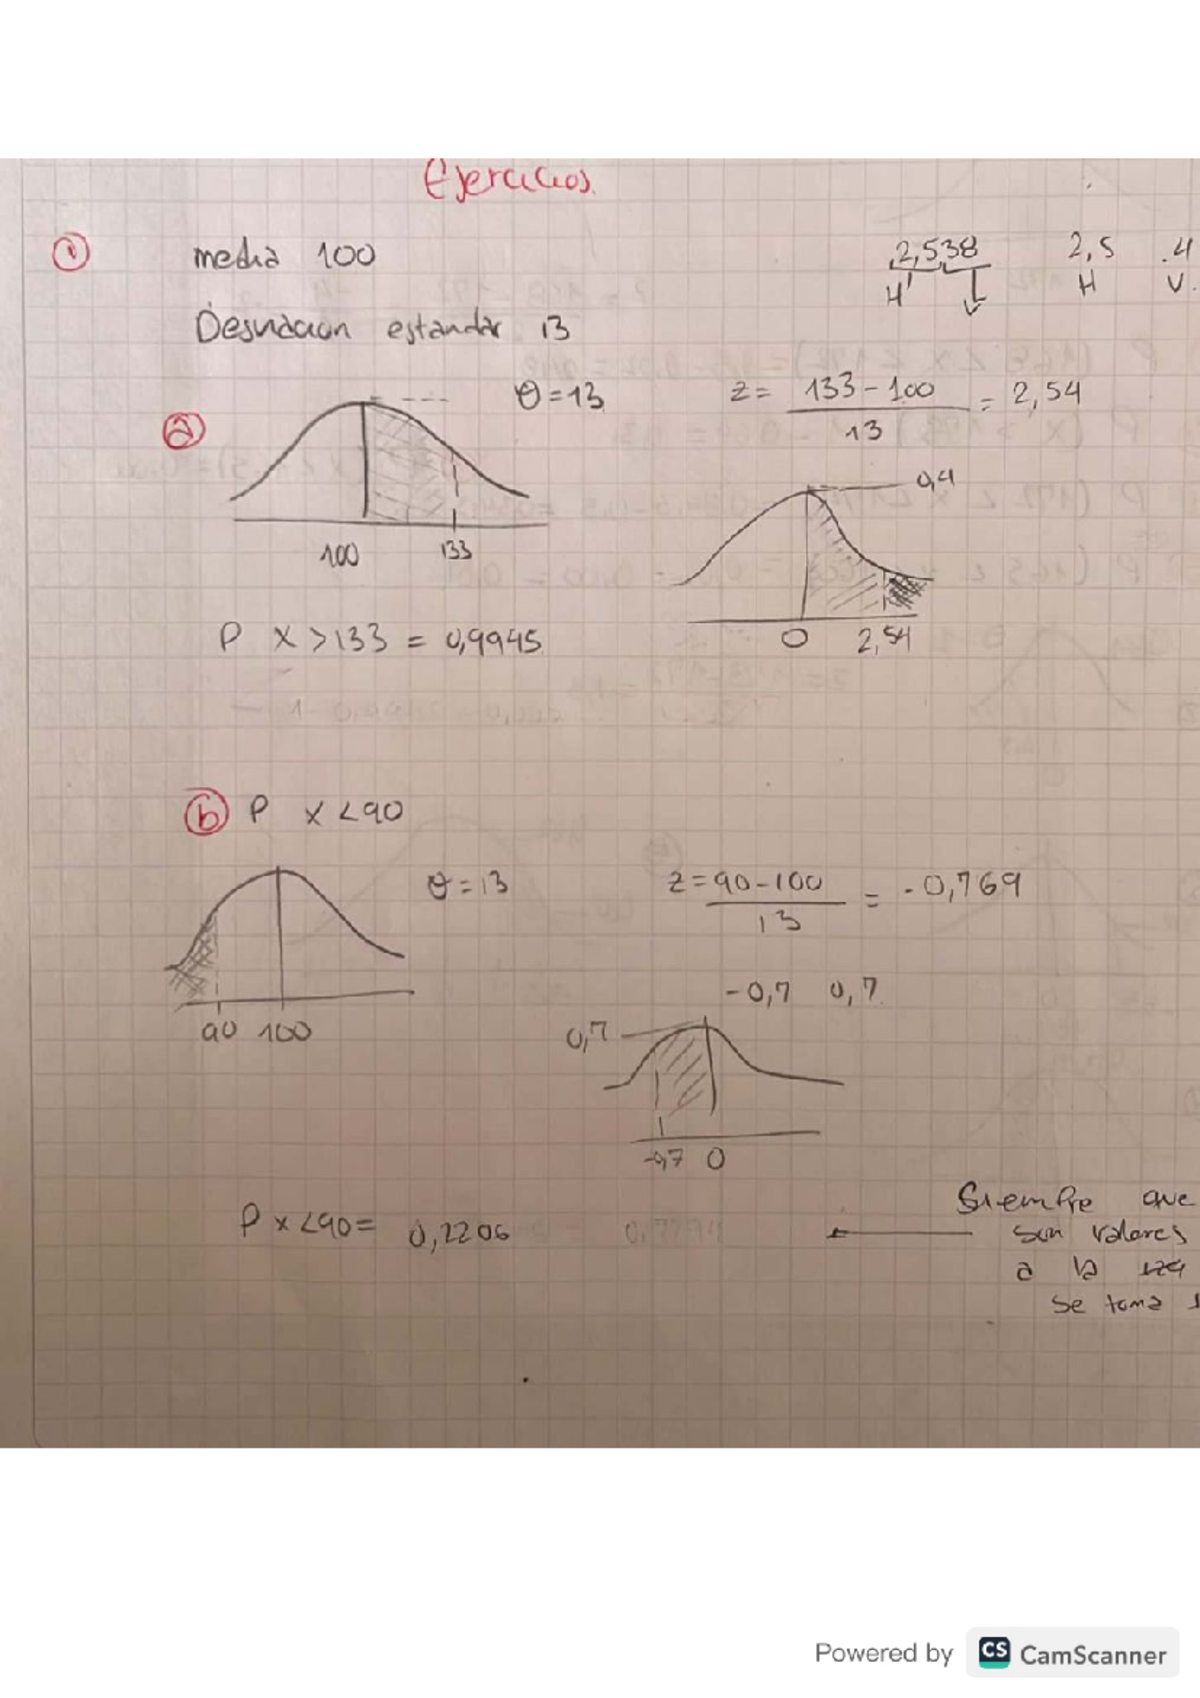 Ejercicios.
① media 100
Desviacion estandar 13
2,538
H
2,5 .4
H V.
ⓐ θ=13
z= 133-100 = 2,54
13
0,4
100 133
0 2,54
P X >133 = 0,9945
ⓑ P X <90
θ=13
z=90-100 = -0,769
13
-0,7 0,7
90 100
0,7
-0,7 0
P X <90= 0,2206
Siempre que
son valores
a la
se toma 1
Powered by CS CamScanner